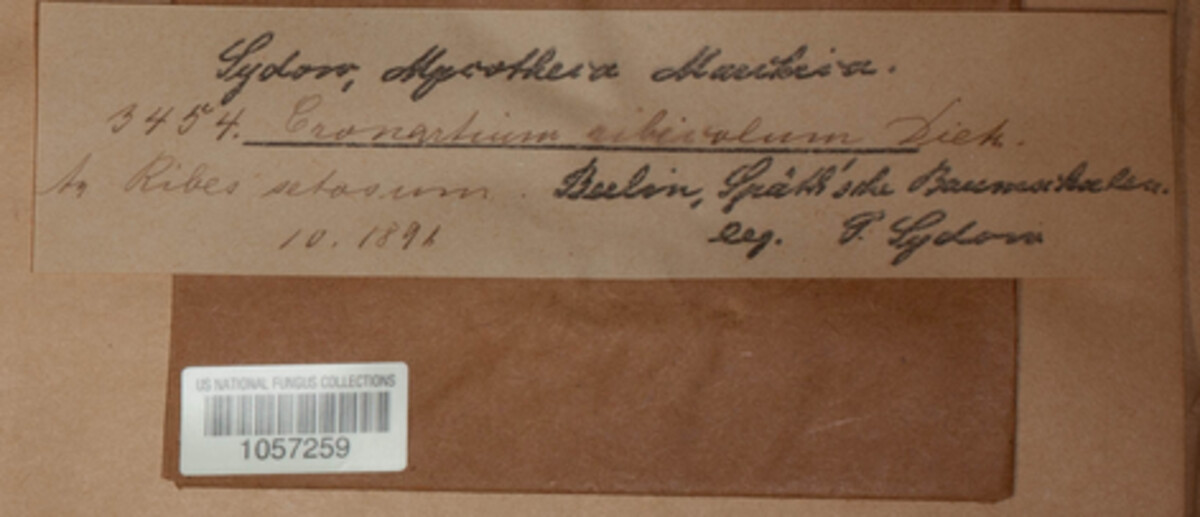 Sydow, Mycotheca Marchica.
3454. Cronartium ribicolum Diet.
Ribes setosum. Berlin, Späth'sche Baumschulen.
10. 1891 leg. P. Sydow
US NATIONAL FUNGUS COLLECTIONS
1057259